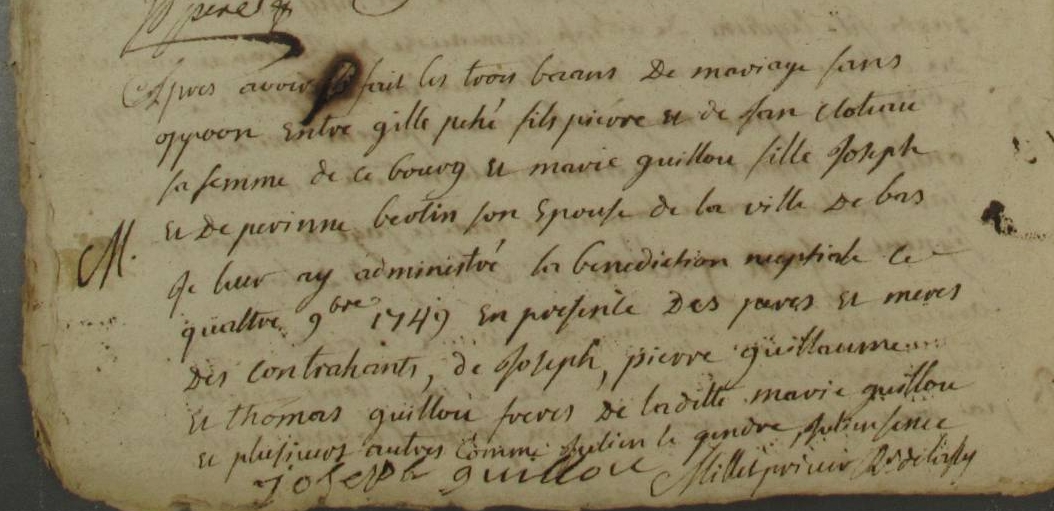 Apres avoir fait les trois banns De mariage sans
oppoon Entre gille pehé fils pierre et de Jan Cloteau
sa femme de ce bourg et marie guillou fille Joseph
et De perinne bertin son Epouse de la ville De bas
M. Je leur ay administré la benediction nuptiale Ce
quattre 9bre 1749 En presence Des peres et meres
Des contrahants, de Joseph, pierre guillaume
et thomas guillou freres De laditte marie guillou
et plusieurs autres Comme Julien le gendre, Julien
joseph guillou Millet prieur